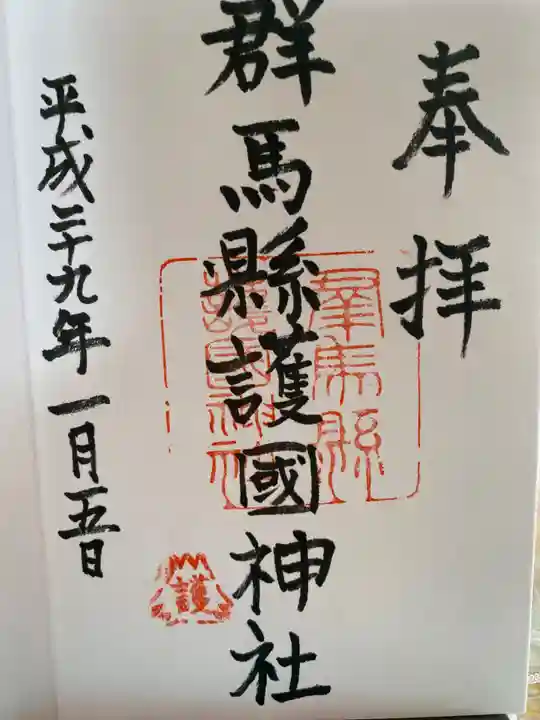 奉拝
群馬縣護國神社
羣馬縣
護國神社
護
平成二十九年一月五日